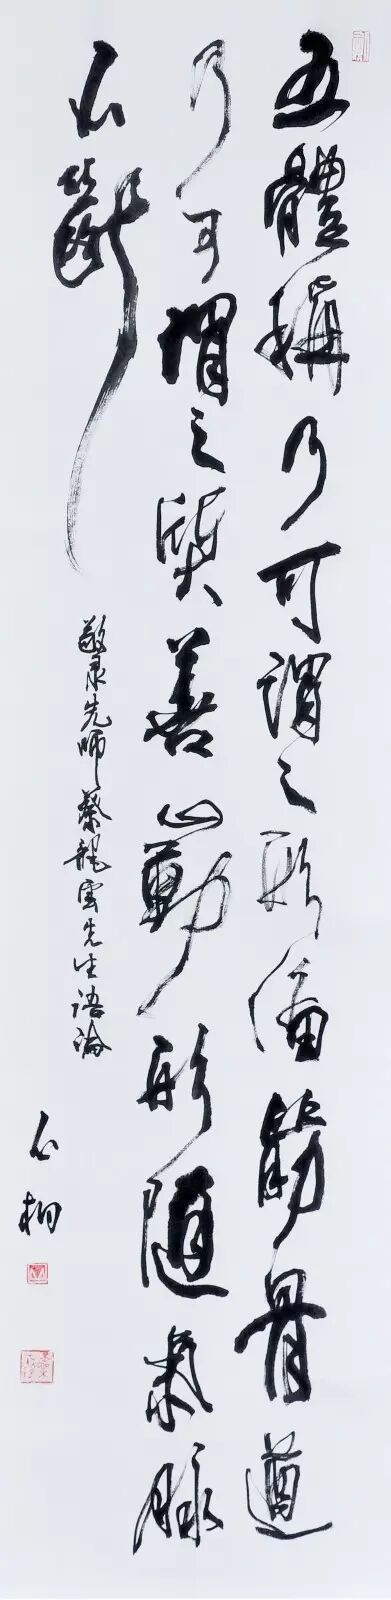 五體稱乃可謂之形備筋骨遒
乃可謂之質善心動形隨氣脉
不斷
敬录先師蔡龍雲先生語論